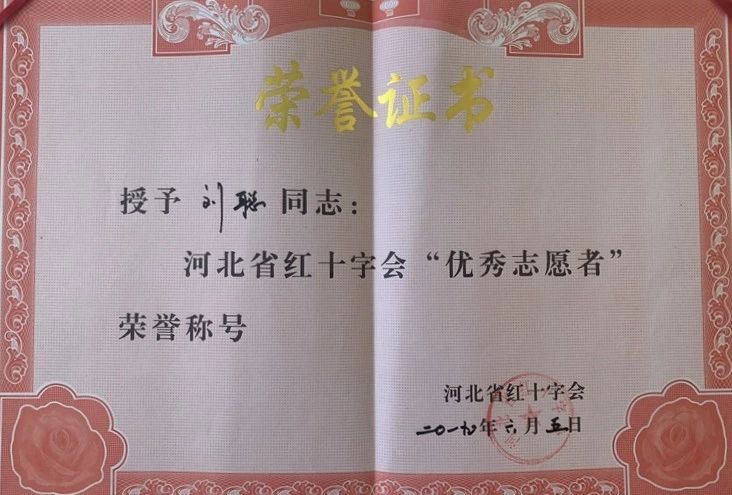 荣誉证书
授予 刘聪 同志：
河北省红十字会“优秀志愿者”
荣誉称号
河北省红十字会
二〇一九年六月五日